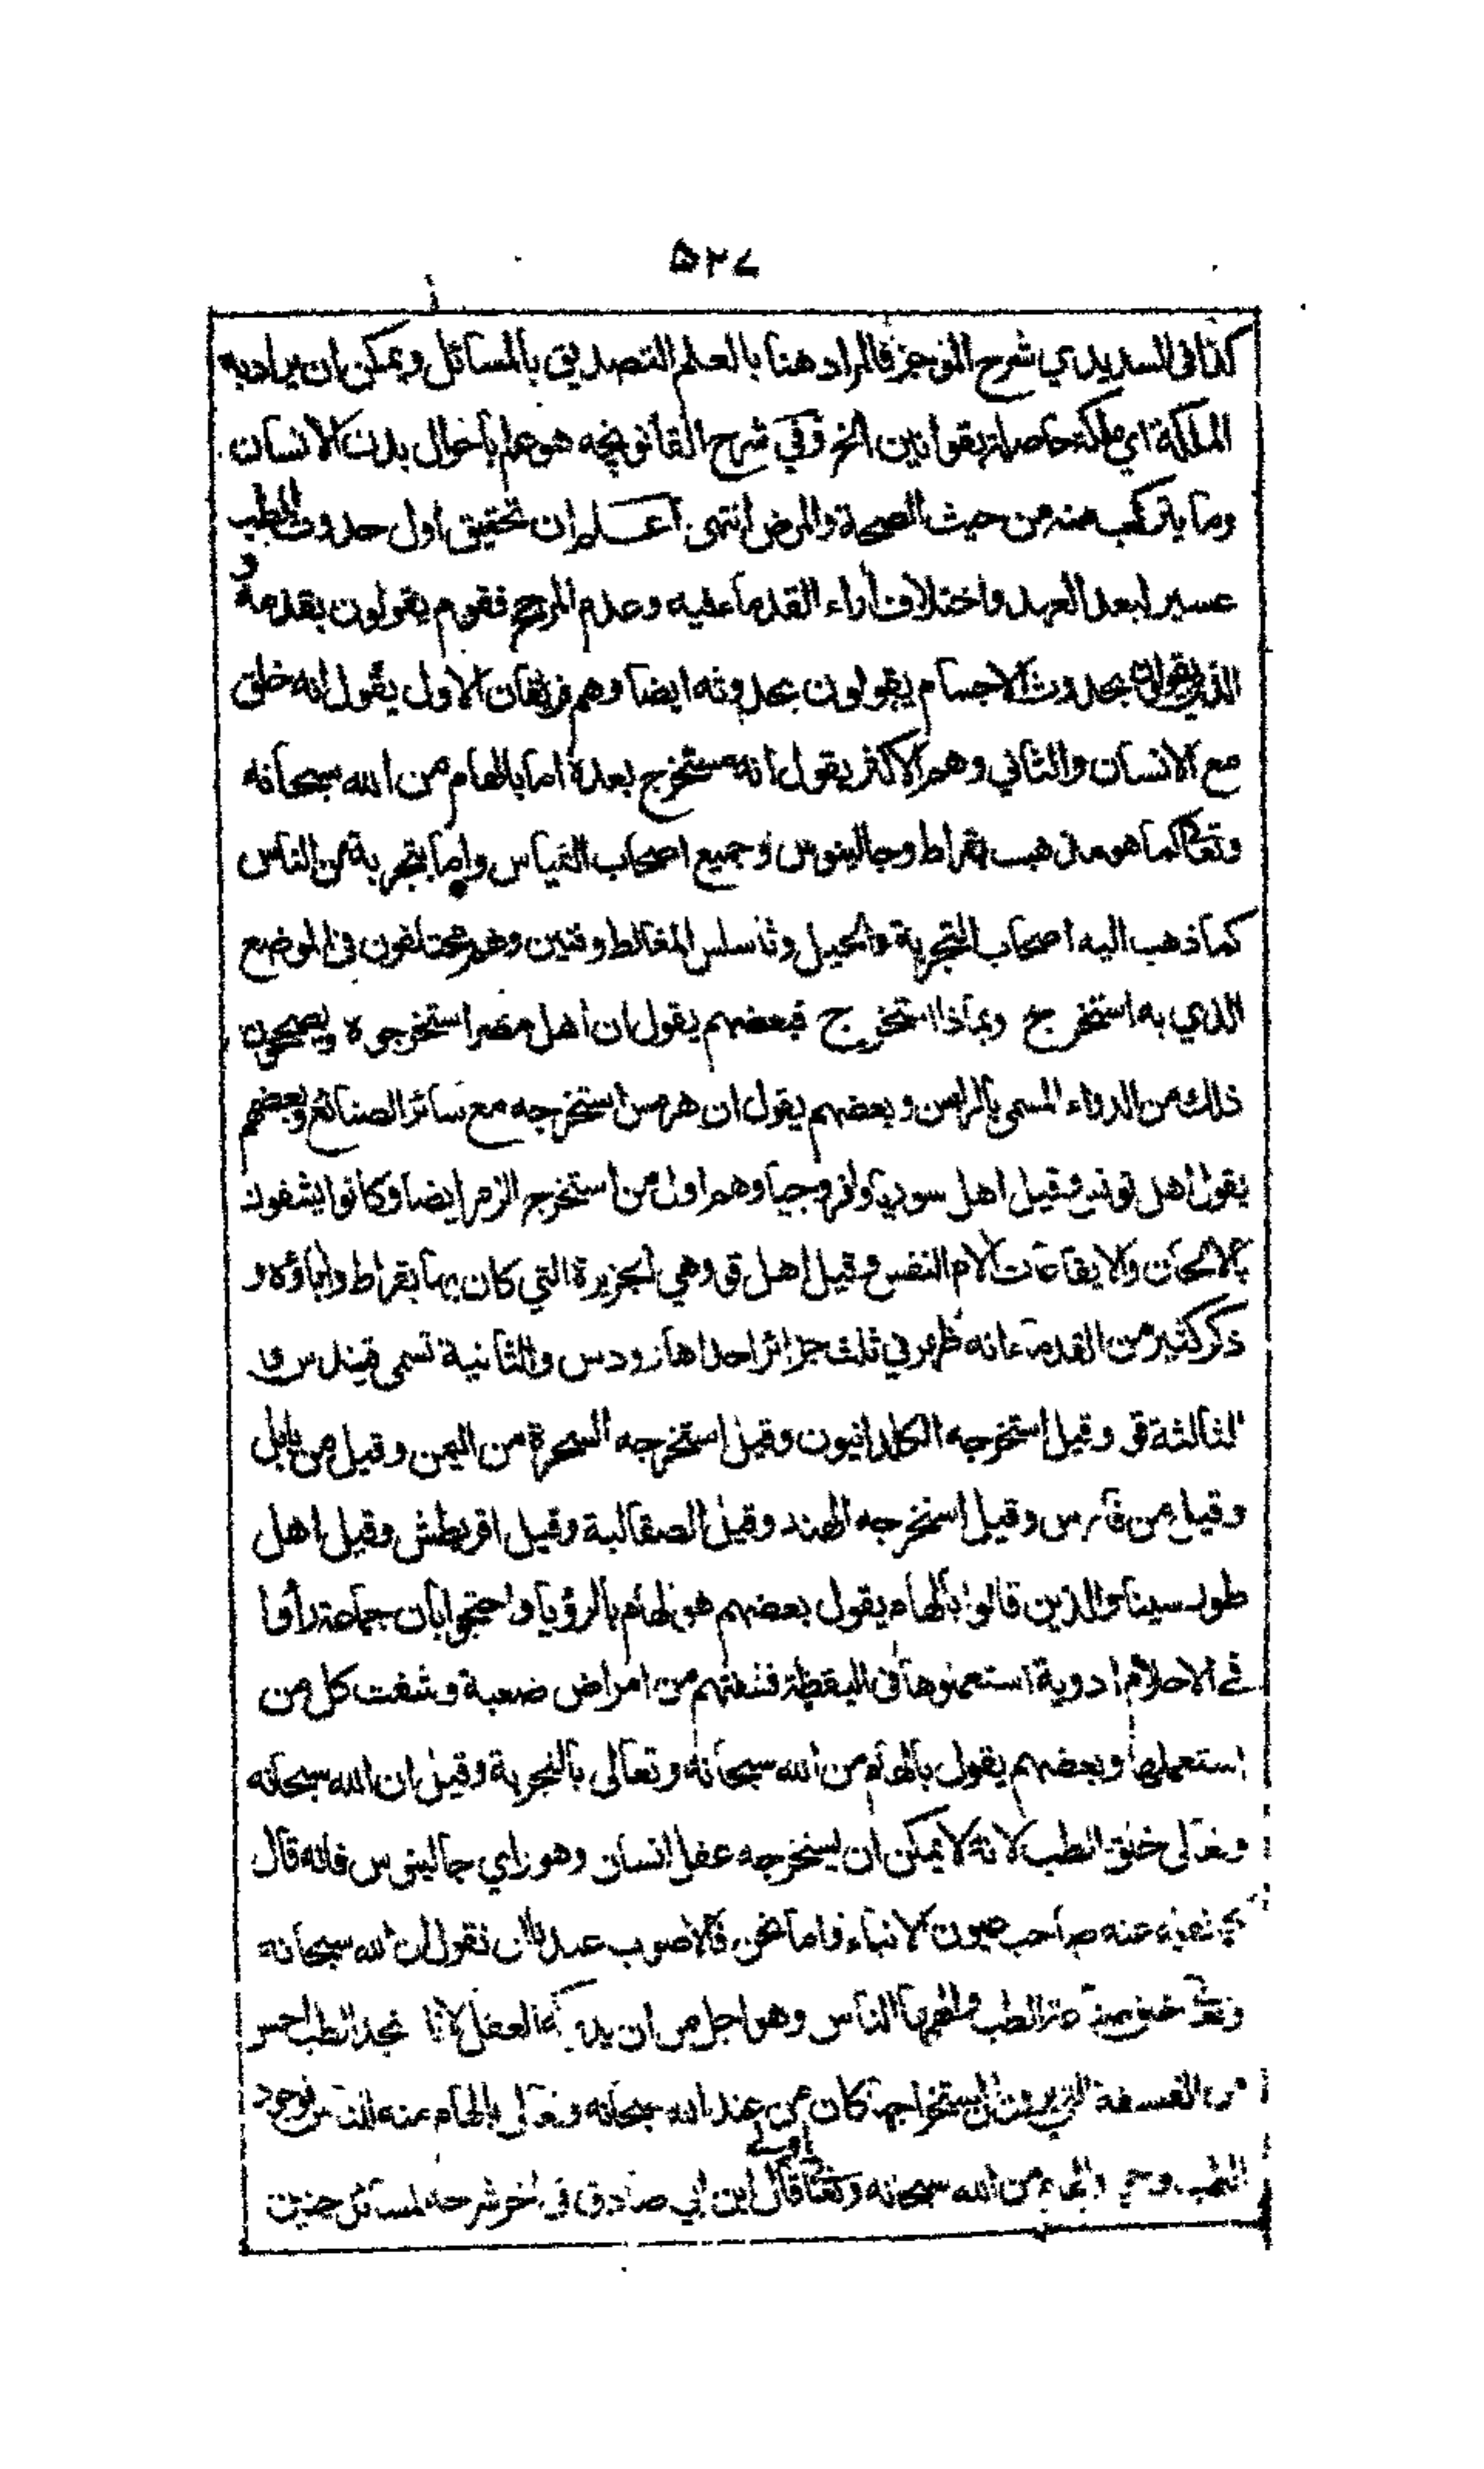 ۵۲۷
كذا في السديدي شرح الموجز فالمراد هنا بالعلم التصديق بالمسائل ويمكن ان يراد به
الملكة اي ملكة حاصلة بقوانين الخ وفي شرح القانونچه هو علم باحوال بدن الانسان
وما يتركب منه من حيث الصحة والمرض انتهى اعلم ان تحقيق اول حدوث الطب
عسير لبعد العهد واختلاف آراء القدماء فيه وعدم المرجح فقوم يقولون بقدمه و
الذين يقولون بحدوث الاجسام يقولون بحدوثه ايضا وهم فريقان الاول يقول انه خلق
مع الانسان والثاني وهم الاكثر يقول انه مستخرج بعده اما بالهام من الله سبحانه
وتعالى كما هو مذهب بقراط وجالينوس وجميع اصحاب القياس واما بتجربة من الناس
كما ذهب اليه اصحاب التجربة والحيل وثاسلس المغالط وفنين وهم مختلفون في الموضع
الذي به استخرج وبماذا استخرج فبعضهم يقول ان اهل مصر استخرجوه ويصححون
ذلك من الدواء المسمى بالراسن وبعضهم يقول ان هرمس استخرجه مع سائر الصنائع وبعضهم
يقول اهل وقيل اهل سوريا وافروجيا وهم اول من استخرج الزمر ايضا وكانوا يشفون
بالالحان والايقاعات آلام النفس وقيل اهل قو وهي الجزيرة التي كان بها بقراط وآباؤه و
ذكر كثير من القدماء انه ظهر في ثلث جزائر احداها رودس والثانية تسمى قنيدس و
الثالثة قو وقيل استخرجه الكلدانيون وقيل استخرجه السحرة من اليمن وقيل من بابل
وقيل من فارس وقيل استخرجه الهند وقيل الصقالبة وقيل اقريطش وقيل اهل
طور سينا والذين قالوا بالهام يقول بعضهم هو الهام بالرؤيا واحتجوا بان جماعة رأوا
في الاحلام ادوية استعملوها في اليقظة فشفتهم من امراض صعبة وشفت كل من
استعملها وبعضهم يقول بالهام من الله سبحانه وتعالى بالتجربة وقيل ان الله سبحانه
وتعالى خلق الطب لانه لا يمكن ان يستخرجه عقل انسان وهو راي جالينوس فانه قال
كما نقله عنه صاحب عيون الانباء فاما نحن فالاصوب عندنا ان نقول ان الله سبحانه
وتعالى خلق صناعة الطب والهمها الناس وهو اجل من ان يدركه العقل لانا نجد الطب احس
من الفلسفة التي يرون ان استخراجها كان من عند الله سبحانه وتعالى بالهام منه للناس فوجود
الطب بوحي والهام من الله سبحانه وتعالى اولى قال ابن ابي صادق في آخر شرحه لمسائل حنين